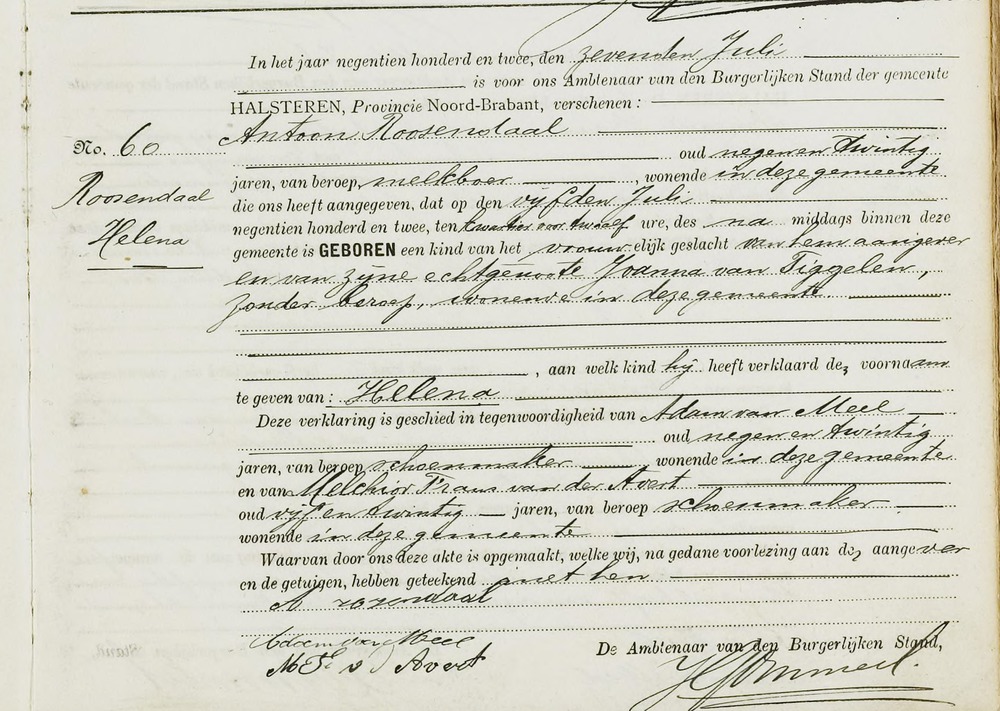 In het jaar negentien honderd en twee, den zevenden Juli
is voor ons Ambtenaar van den Burgerlijken Stand der gemeente
HALSTEREN, Provincie Noord-Brabant, verschenen:
Antoon Roosendaal
No. 60
oud negen en twintig
jaren, van beroep melkboer, wonende in deze gemeente
Roosendaal
Helena
die ons heeft aangegeven, dat op den vijfden Juli
negentien honderd en twee, ten kwartier voor twaalf ure, des na middags binnen deze
gemeente is GEBOREN een kind van het vrouw-elijk geslacht van hem aangever
en van zijne echtgenoote Joanna van Tiggelen,
zonder beroep, wonende in deze gemeente
, aan welk kind hij heeft verklaard de voornaam
te geven van: Helena
Deze verklaring is geschied in tegenwoordigheid van Adam van Meel
oud negen en twintig
jaren, van beroep schoenmaker, wonende in deze gemeente
en van Melchior Frans van der Avert
oud vijf en twintig jaren, van beroep schoenmaker
wonende in deze gemeente
Waarvan door ons deze akte is opgemaakt, welke wij, na gedane voorlezing aan de aangever
en de getuigen, hebben geteekend met hen
A rozendaal
Adam van Meel
De Ambtenaar van den Burgerlijken Stand,
M F v D Avert